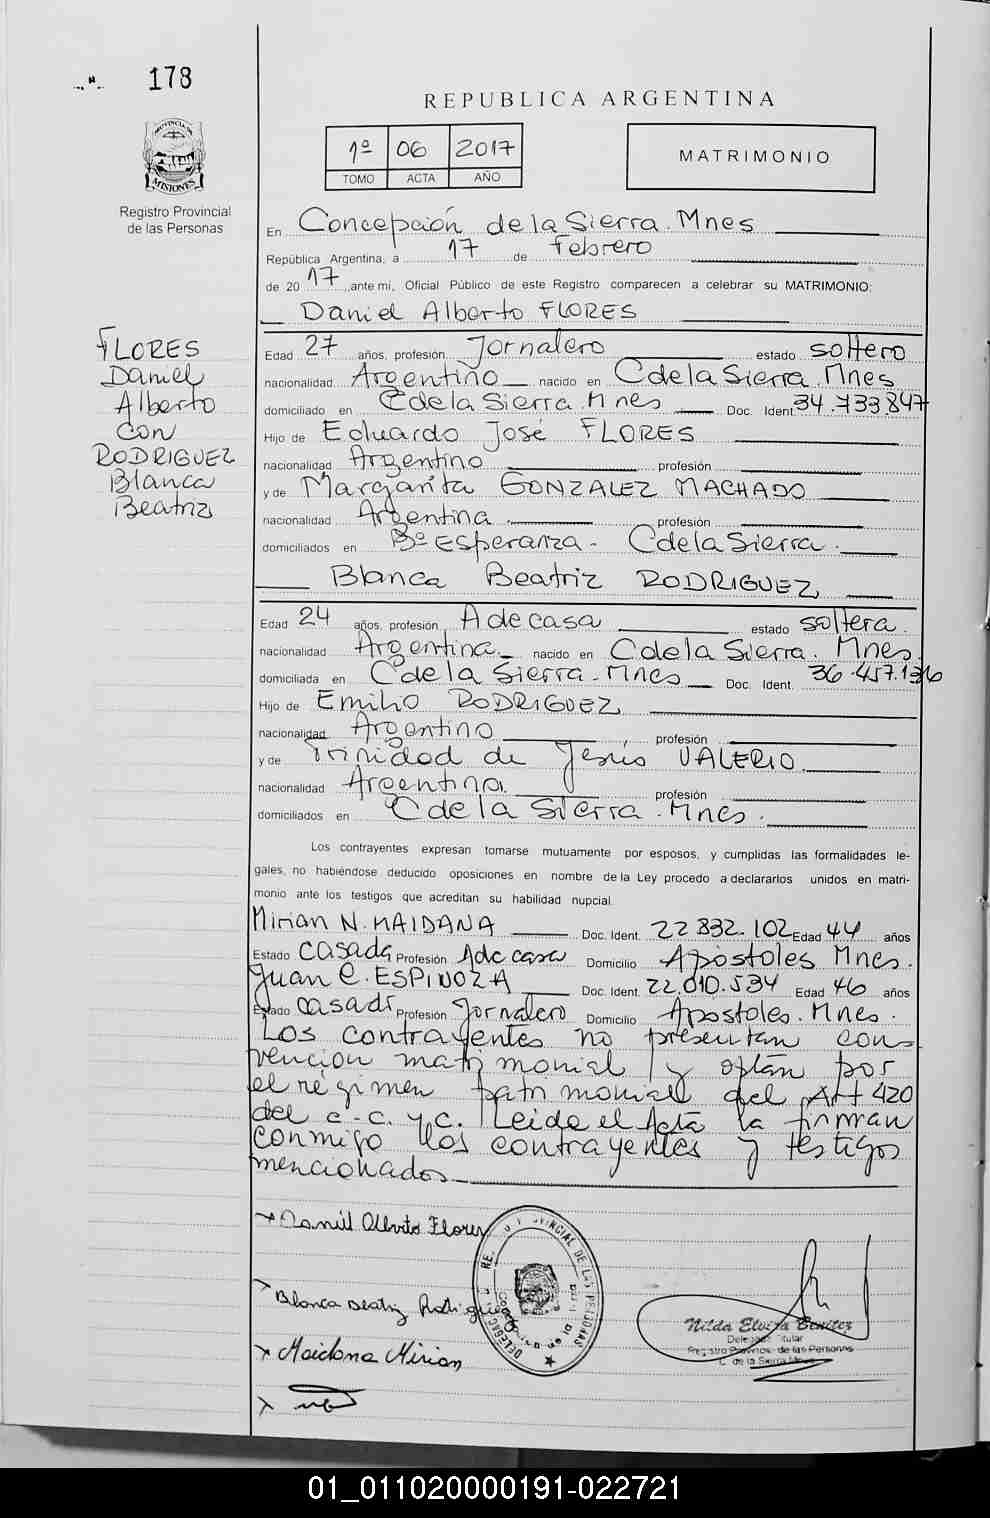 178
REPUBLICA ARGENTINA
1º 06 2017
TOMO ACTA AÑO
MATRIMONIO
PROVINCIA DE
MISIONES
Registro Provincial
de las Personas
FLORES
Daniel
Alberto
con
RODRIGUEZ
Blanca
Beatriz
En Concepción de la Sierra. Mnes
República Argentina, a 17 de febrero
de 20 17, ante mí, Oficial Público de este Registro comparecen a celebrar su MATRIMONIO:
Daniel Alberto FLORES
Edad 27 años, profesión Jornalero estado soltero
nacionalidad Argentino nacido en C de la Sierra. Mnes
domiciliado en C de la Sierra. Mnes Doc. Ident. 34.733.847
Hijo de Eduardo José FLORES
nacionalidad Argentino profesión
y de Margarita GONZALEZ MACHADO
nacionalidad Argentina profesión
domiciliados en Bº Esperanza - C de la Sierra.
Blanca Beatriz RODRIGUEZ
Edad 24 años, profesión A de casa estado soltera.
nacionalidad Argentina nacido en C de la Sierra. Mnes.
domiciliada en C de la Sierra. Mnes Doc. Ident. 36.457.136
Hijo de Emilio RODRIGUEZ
nacionalidad Argentino profesión
y de Trinidad de Jesús VALERIO
nacionalidad Argentina. profesión
domiciliados en C de la Sierra. Mnes.
Los contrayentes expresan tomarse mutuamente por esposos, y cumplidas las formalidades le-
gales, no habiéndose deducido oposiciones en nombre de la Ley procedo a declararlos unidos en matri-
monio ante los testigos que acreditan su habilidad nupcial.
Mirian N. MAIDANA Doc. Ident. 22 832.102 Edad 44 años
Estado casada Profesión A de casa Domicilio Apóstoles Mnes.
Juan C. ESPINOZA Doc. Ident. 22.010.534 Edad 46 años
Estado casado Profesión Jornalero Domicilio Apostoles. Mnes.
Los contrayentes no presentan con-
vencion matrimonial y optan por
el régimen patrimonial del Art 420
del c.c. y c. Leida el Acta la firman
conmigo los contrayentes y testigos
mencionados
Daniel Alberto Flores
Blanca Beatriz Rodriguez
Maidana Mirian
Nilda Elvira Benitez
Delegada Titular
Registro Provincial de las Personas
C. de la Sierra Mnes
01_011020000191-022721